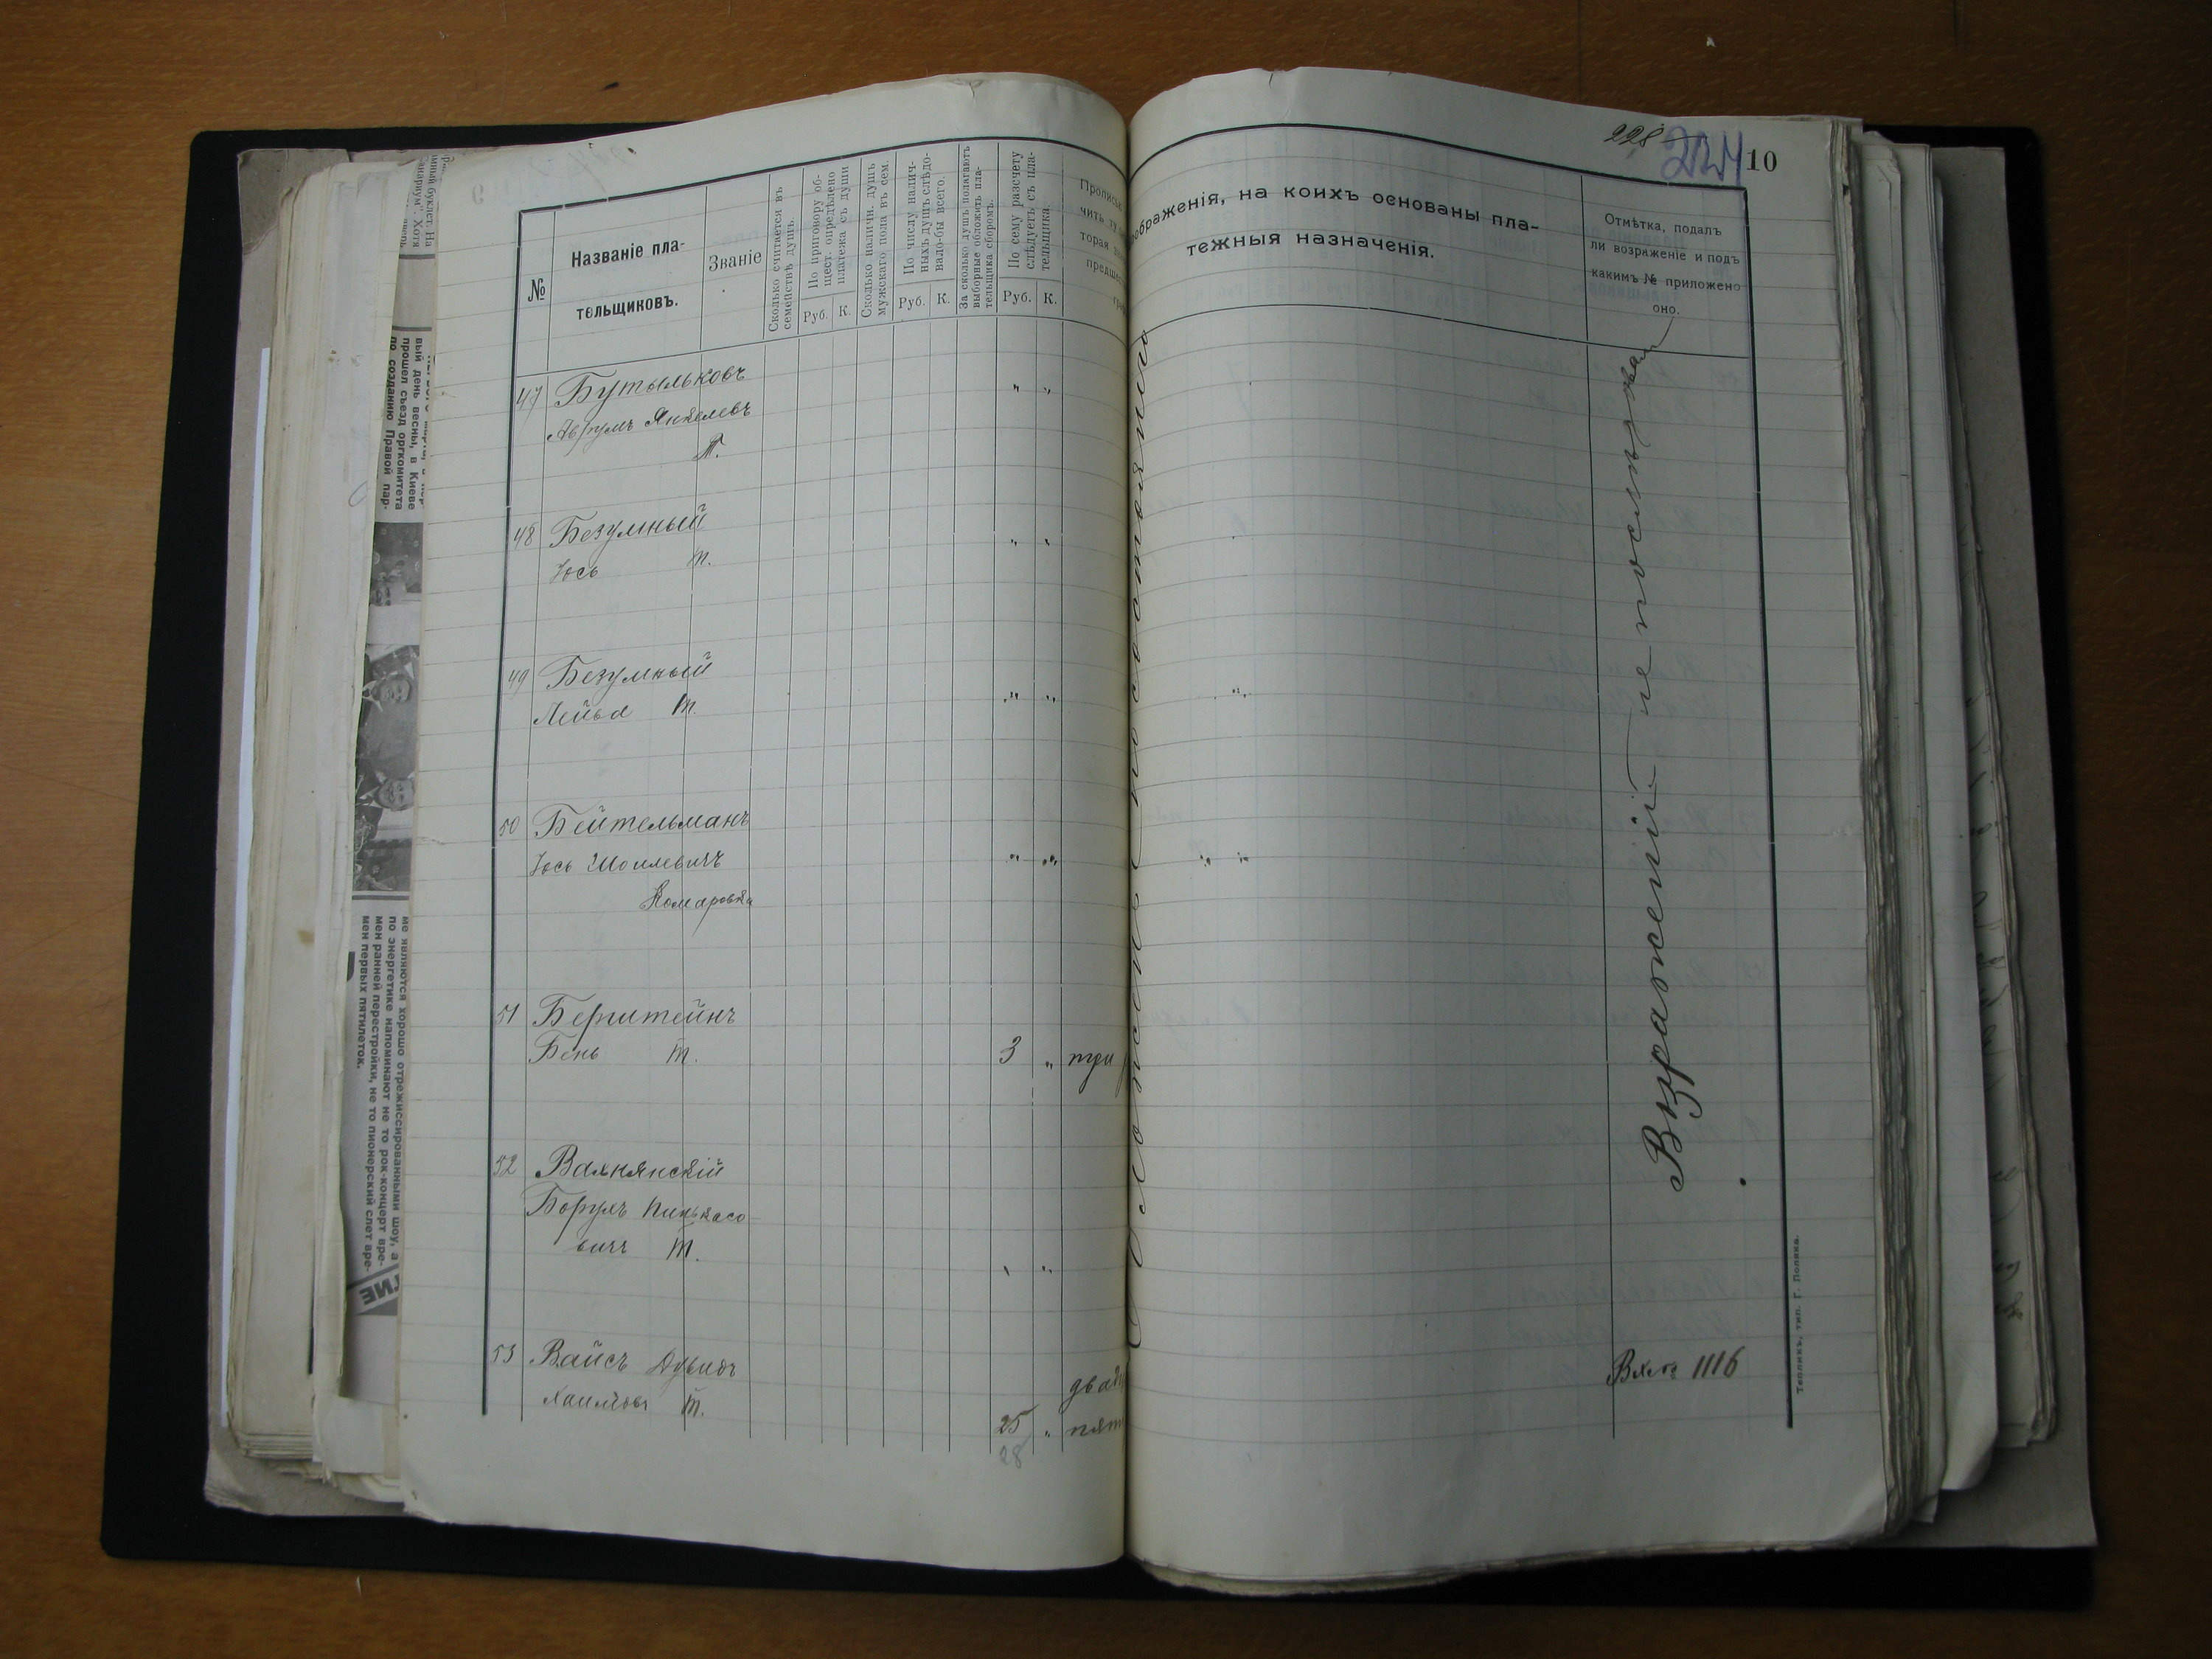 228
224
10
№
Названіе пла-
тельщиковъ.
Званіе
Сколько считается въ
семействѣ душъ.
По приговору об-
щест. опредѣлено
платежа съ души
Руб. К.
Сколько наличн. душъ
мужскаго пола въ сем.
По числу налич-
ныхъ душъ слѣдо-
вало-бы всего.
Руб. К.
За сколько душъ полагаютъ
выборные обложить пла-
тельщика сборомъ.
По сему разсчету
слѣдуетъ съ пла-
тельщика.
Руб. К.
ображенія, на коихъ основаны пла-
тежныя назначенія.
Отмѣтка, подалъ
ли возраженіе и подъ
какимъ № приложено
оно.
47 Бутыльковъ
Аврумъ Янкелевъ
Т.
" "
48 Безумный
Іось Т.
" "
49 Безумный
Лейба Т.
" "
50 Бейтельманъ
Іось Шоилевичъ
Комаровка
" "
51 Берштейнъ
Бень Т.
3 " три
52 Вахнянскій
Борухъ Пинькасо-
вичъ Т.
" "
53 Вайсъ Дувидъ
Хаимовъ Т.
25 "
28
по состоянію
Возраженій не поступало
1116
Тепликъ, тип. Г. Полика.
вый день весны, в Киеве
прошел съезд оргкомитета
по созданию Правой пар-
ме являются хорошо отрежиссированными шоу, а
по энергетике напоминают не то рок-концерт вре-
мен ранней перестройки, не то пионерский слет вре-
мен первых пятилеток.